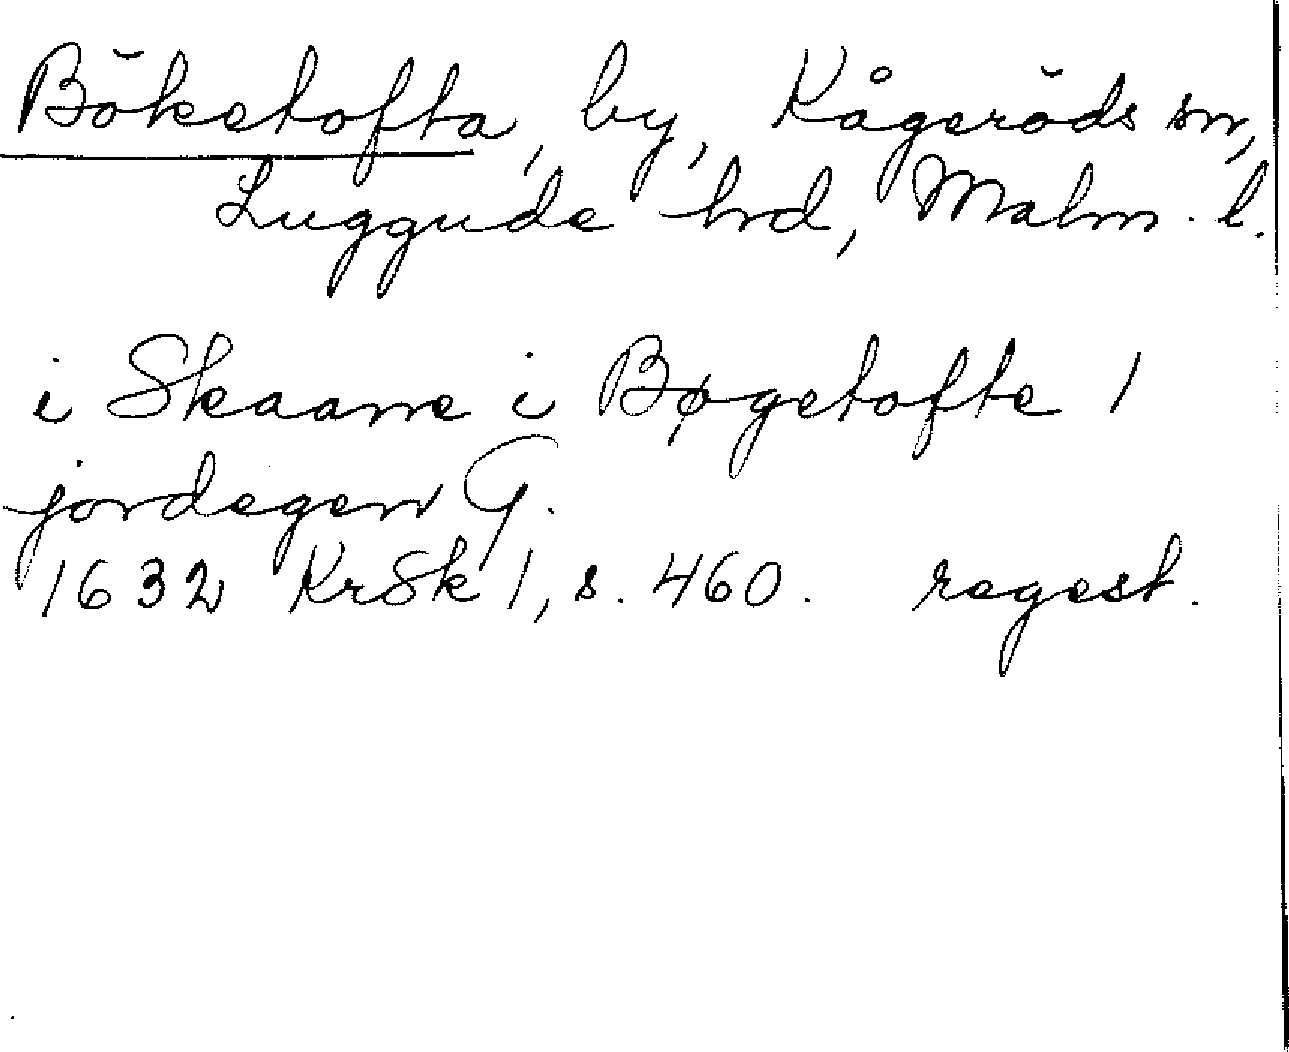 Böketofta, by, Kågeröds sn,
Luggude hrd, Malm. l.
i Skaane i Bøgetofte 1
jordegen G.
1632 KrSk 1, s. 460. regest.